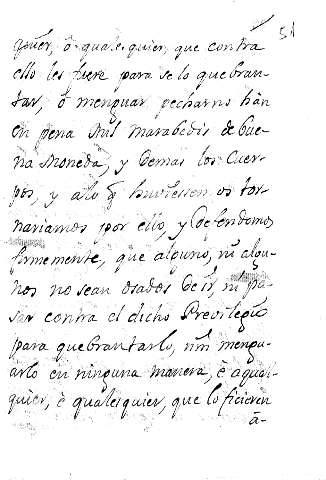 51
quier, ô quales quier, que contra
ello les fuere para se lo quebran-
tar, ô menguar pecharnos hàn
en pena Mil marabedis de bue-
na Moneda, y demas los Cuer-
pos, y a lo q̃ huviessen os tor-
nariamos por ello, y Defendemos
firmemente, que alguno, nî algu-
nos no sean osados De ir, nî pa-
sar contra el dicho Previlegio
para quebrantarlo, nîn mengu-
arlo en ninguna manera, è a qual-
quier, è qualesquier, que lo ficieren
à-